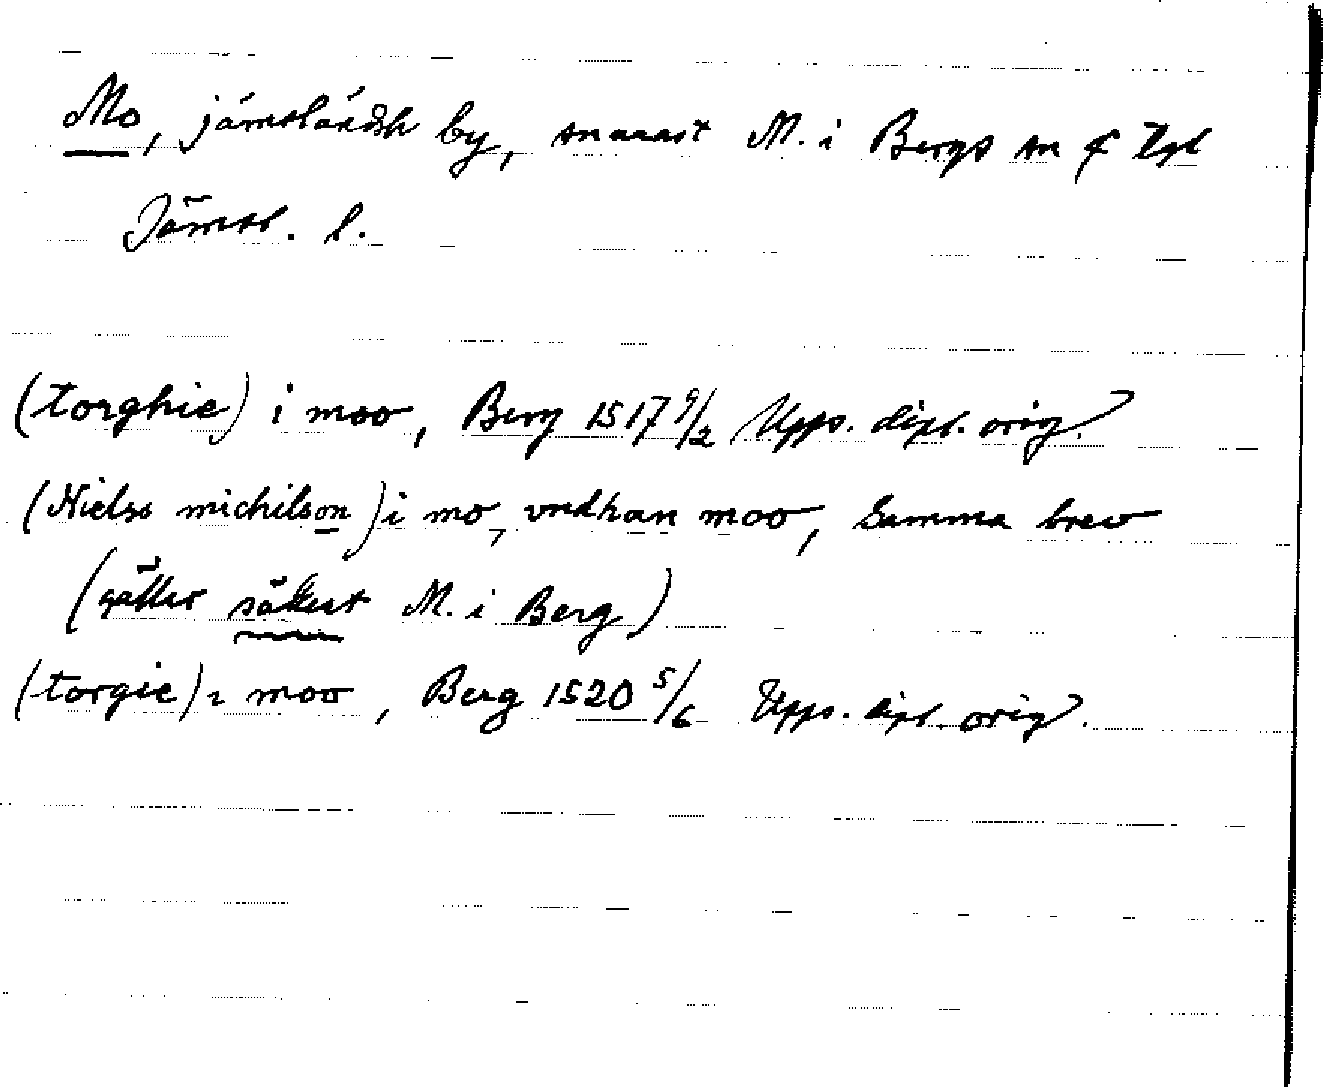 Mo, jämtländsk by, snarast M. i Bergs sn & tgl
Jämtl. l.
(torghie) i moo, Berg 1517 9/2 Upps. dipl. orig.
(Nielss michilson) i mo, vndhan moo, samma brev
(gäller säkert M. i Berg)
(torgie) i moo, Berg 1520 5/6 Upps. dipl. orig.